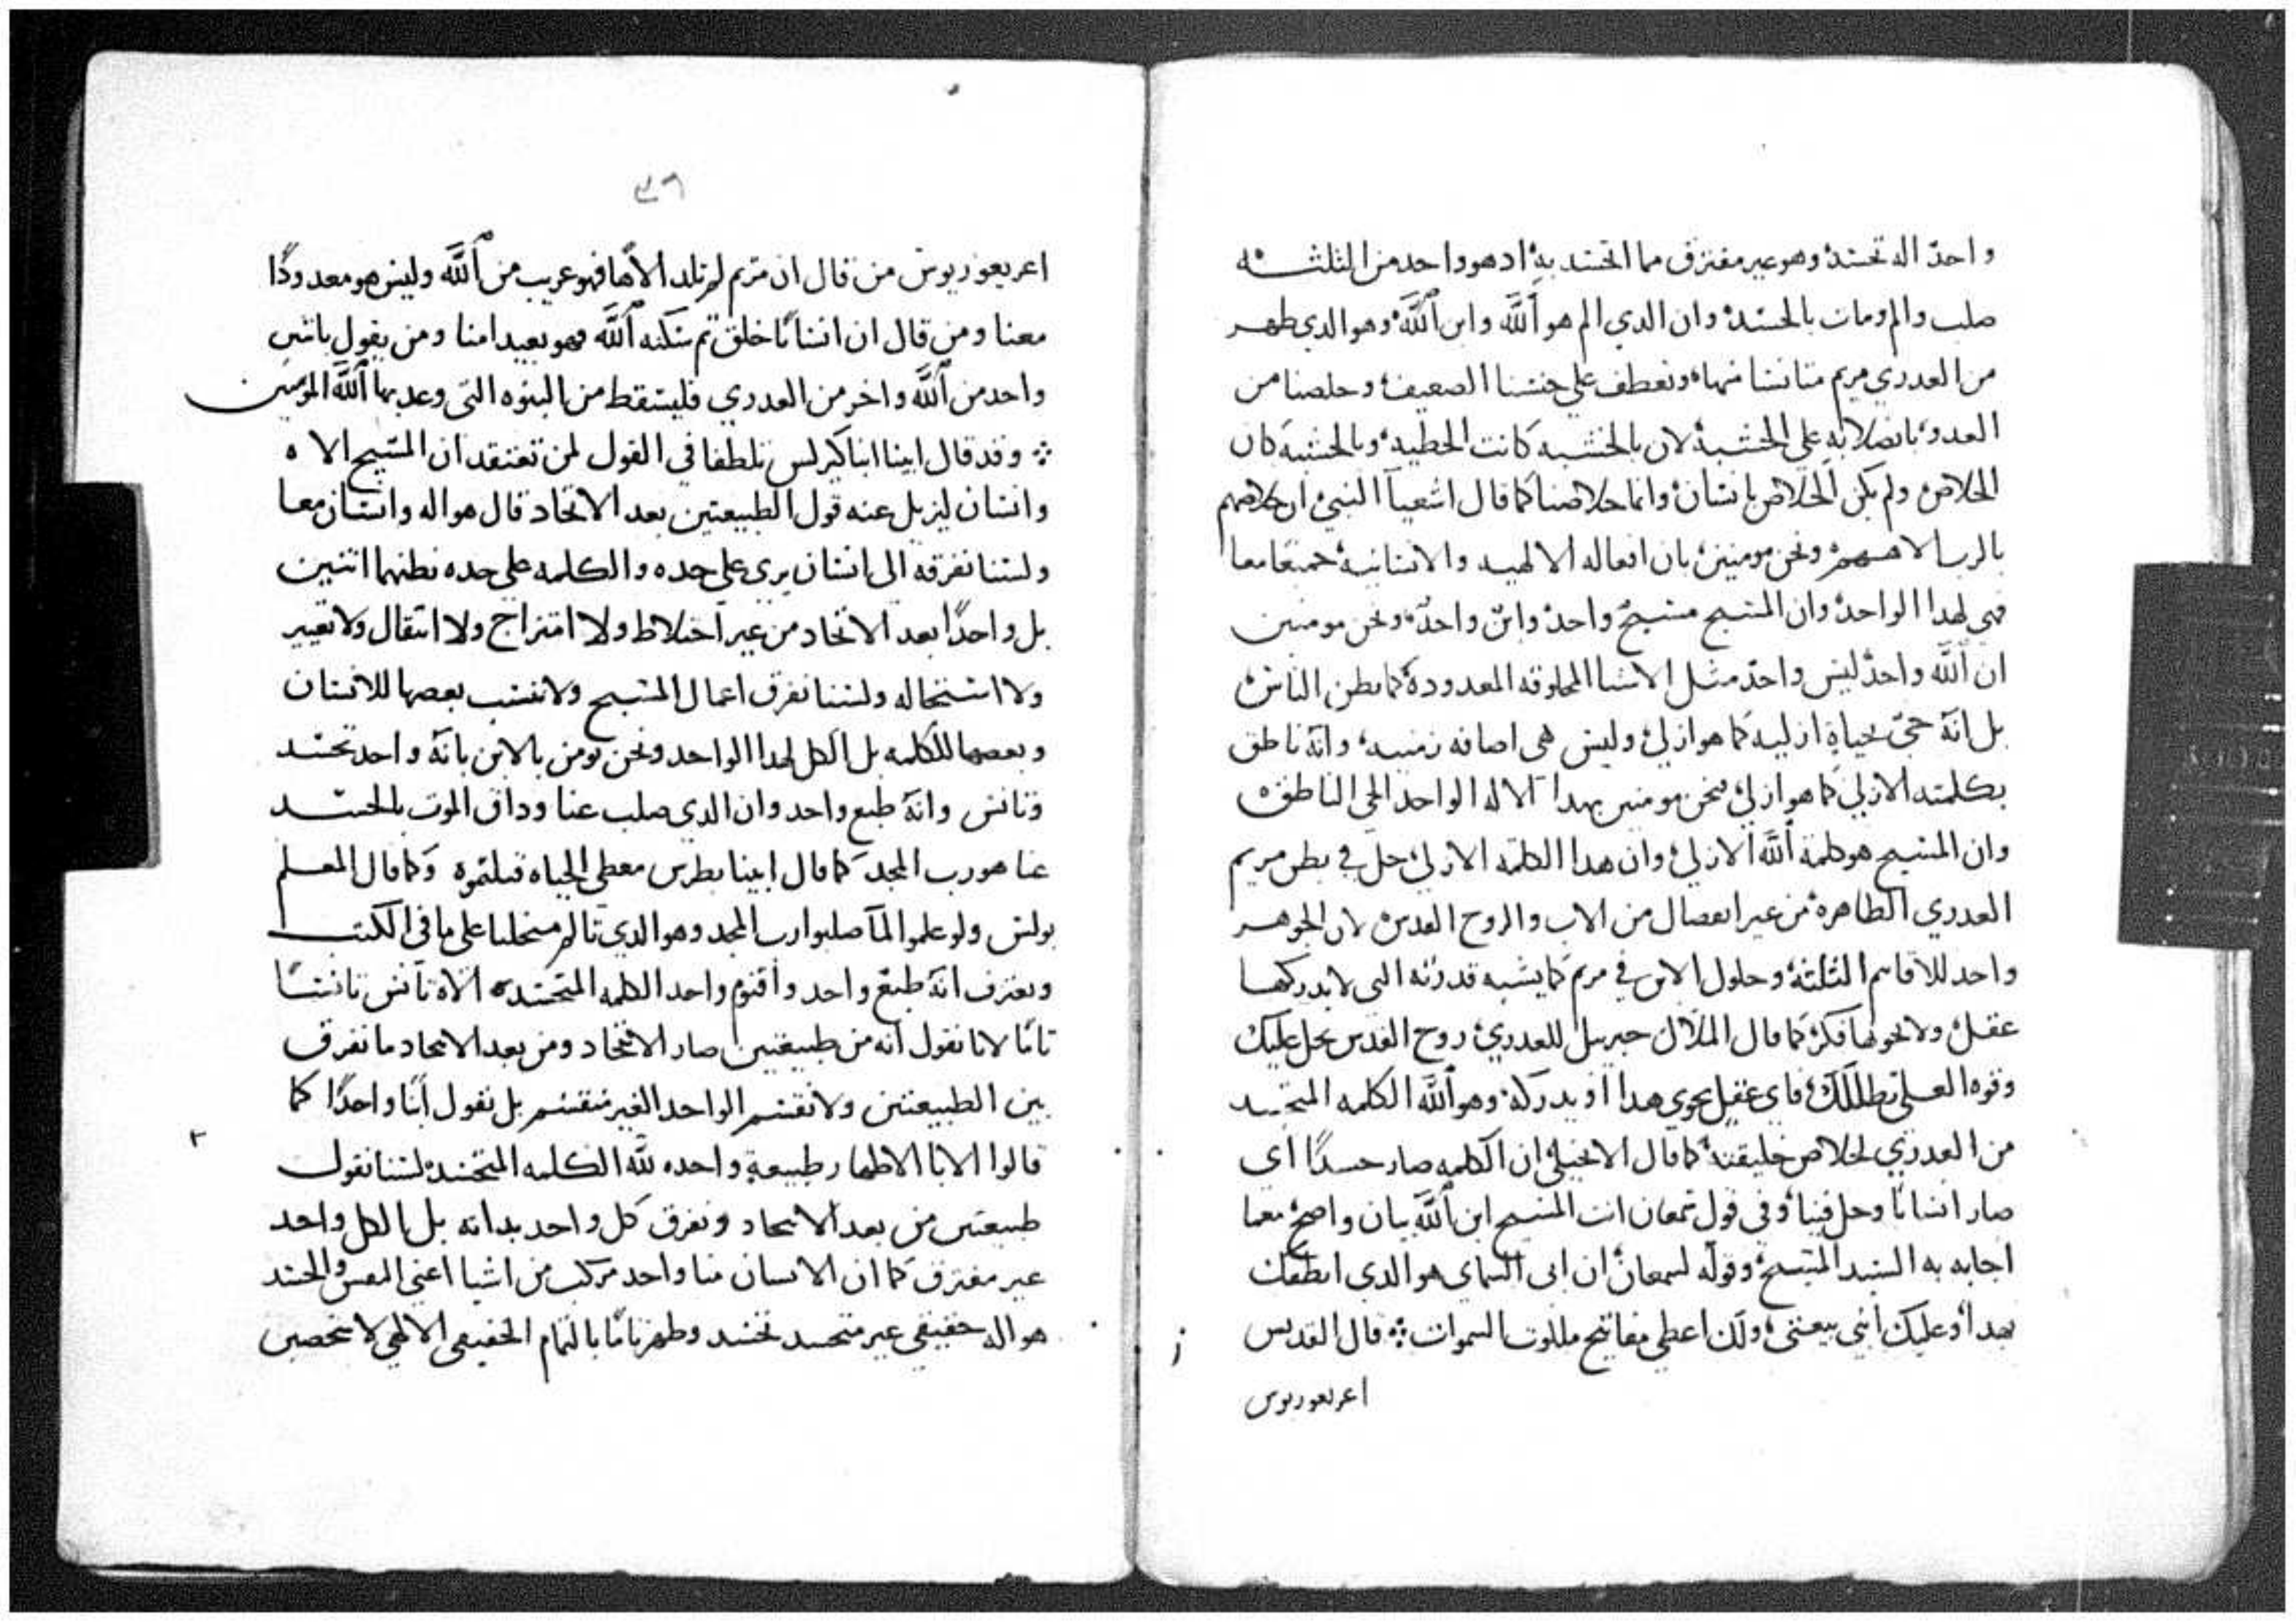 واحدٌ اله تجسد وهو غير مفترق مما اتحسد به اد هو واحد من الثلثه
صلب والم ومات بالحسد وان الدي الم هو اللَّه وابن اللَّه وهو الدي طهر
من العدري مريم متانسا منها وتعطف علي جنسنا الصعيف وخلصنا من
العدو علي الخشبة لان بالخشبه كانت الخطيه وبالخشبه كان
الخلاص ولم يكن الخلاص بانسان وانما خلاصنا كما قال اشعيا النبي ان خلاصهم
بالرب الاههم ونحن مومنين بان افعاله الالهيه والانسانيه جميعا معا
فهي لهدا الواحد وان المسيح مسيح واحد وابن واحد ونحن مومنين
ان اللَّه واحد ليس واحد مثل الاشيا المخلوقه المعدودة كما يظن الناس
بل انه حي بحياة ازليه كما هو ازلي وليس هى اضافه زمنيه وانه ناطق
بكلمته الازلي كما هو ازلي فنحن مومنين بهدا الاله الواحد الحي الناطق
وان المسيح هو كلمة اللَّه الازلي وان هدا الكلمة الازلي حل في بطن مريم
العدري الطاهرة من غير انفصال من الاب والروح القدس لان الجوهر
واحد للاقانيم الثلثة وحلول الابن في مريم كما يشبه قدرته التي لا يدركها
عقل ولا يحويها فكر كما قال الملاك جبريل للعدري روح القدس يحل عليك
وقوه العلي تظللك فاي عقل يحوي هدا او يدركه وهو اللَّه الكلمه المتجسد
من العدري لخلاص خليقته كما قال الانجيل ان الكلمه صار جسدًا اي
صار انسانًا وحل فينا وفي قول سمعان انت المسيح ابن اللَّه بيان واضح معما
اجابه به السيد المسيح وقوله لسمعان ان ابي السماي هو الدي انطقك
بهدا وعليك ابني بيعتي ولك اعطي مفاتيح ملكوت السموات قال القديس
اغريغوريوس
٣٦
اغريغوريوس من قال ان مريم لم تلد الاهًا فهو غريب من اللَّه وليس هو معدودًا
معنا ومن قال ان انسانًا خلق ثم سكنه اللَّه فهو بعيدا منا ومن يقول باثنين
واحد من اللَّه واخر من العدري فليسقط من البنوه التي وعد بها اللَّه المومنين
وقد قال ابينا انبا كيرلس تلطفا في القول لمن تعتقد ان المسيح الاه
وانسان ليزيل عنه قول الطبيعتين بعد الاتحاد قال هو اله وانسان معا
ولسنا نفرقه الى انسان يرى على حده والكلمه على حده نظنهما اثنين
بل واحدًا بعد الاتحاد من غير اختلاط ولا امتزاج ولا انتقال ولا تغيير
ولا استحاله ولسنا نفرق اعمال المسيح ولا ننسب بعضها للانسان
وبعضها للكلمه بل الكل لهدا الواحد ونحن نومن بالابن بانه واحد تجسد
وتانس وانه طبع واحد وان الدي صلب عنا وداق الموت بالحسد
عنا هو رب المجد كما قال ابينا بطرس معطي الحياه قتلتموه وكما قال المعلم
بولس ولو علموا لما صلبوا رب المجد وهو الدي تالم على ما في الكتب
ونعترف انه طبع واحد واقنوم واحد الكلمه المتجسد الاه تانس تانسًا
تامًا لانا نقول انه من طبيعتين صار الاتحاد ومن بعد الاتحاد ما نفرق
بين الطبيعتين ولا نقسم الواحد الغير منقسم بل نقول ابنًا واحدًا كما
قالوا الابا الاطهار طبيعة واحده للَّه الكلمه المتجسد لسنا نقول
طبيعتين من بعد الاتحاد ونفرق كل واحد بداته بل الكل واحد
غير مفترق كما ان الانسان منا واحد مركب من اشيا اعني النفس والجسد
هو اله حقيقي غير متجسد تجسد وظهر تامًا بالتمام الحقيقي الالهي لا شخصين